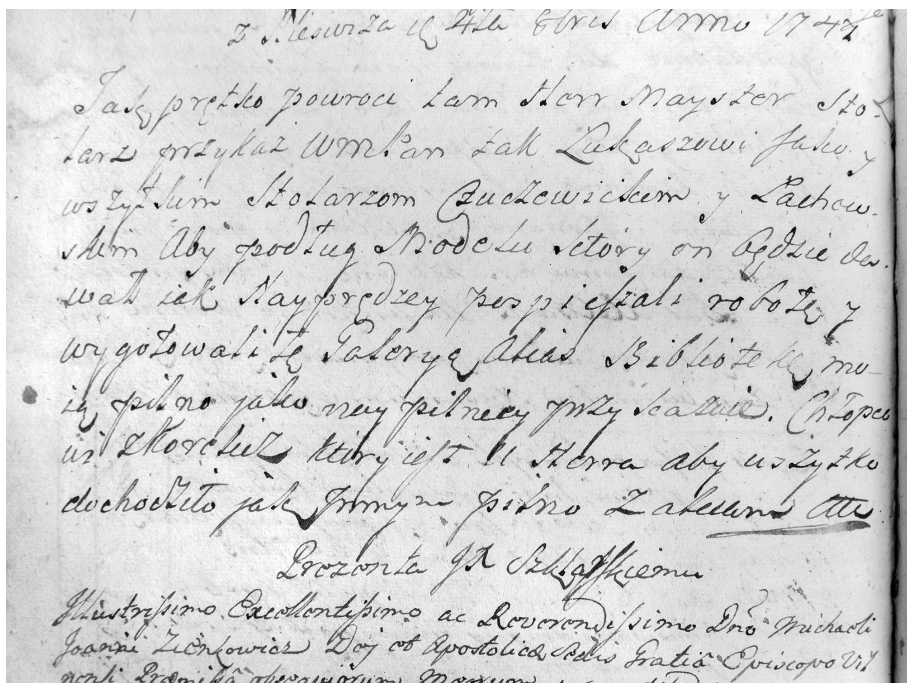 z Nieswiża d 4ta 8bris Anno 1747
Jak prętko powroci tam Herr Mayster Sto-
larz przykaż WmPan tak Lukaszowi Jako y
wszytkim Stolarzom Czuczewickim y Lachow-
skim Aby podług Modelu ktory on będzie da-
wał jak Nayprędzey pospieszali robotę y
wygotowali tę Galeryą Alias Bibliotekę mo-
ią pilno jako naypilniey przykazuie. Chłopco
wi zKorelicz ktory jest u Herra aby wszytko
dochodziło jak pilno Zalecam Etc
Prezenta JX Szklarskiemu
Jllustrissimo Excellentissimo ac Reverendissimo Dno Michaeli
Joanni Zienkowicz Dej et Apostolicæ Sedis Gratiâ Episcopo Vil
nensi